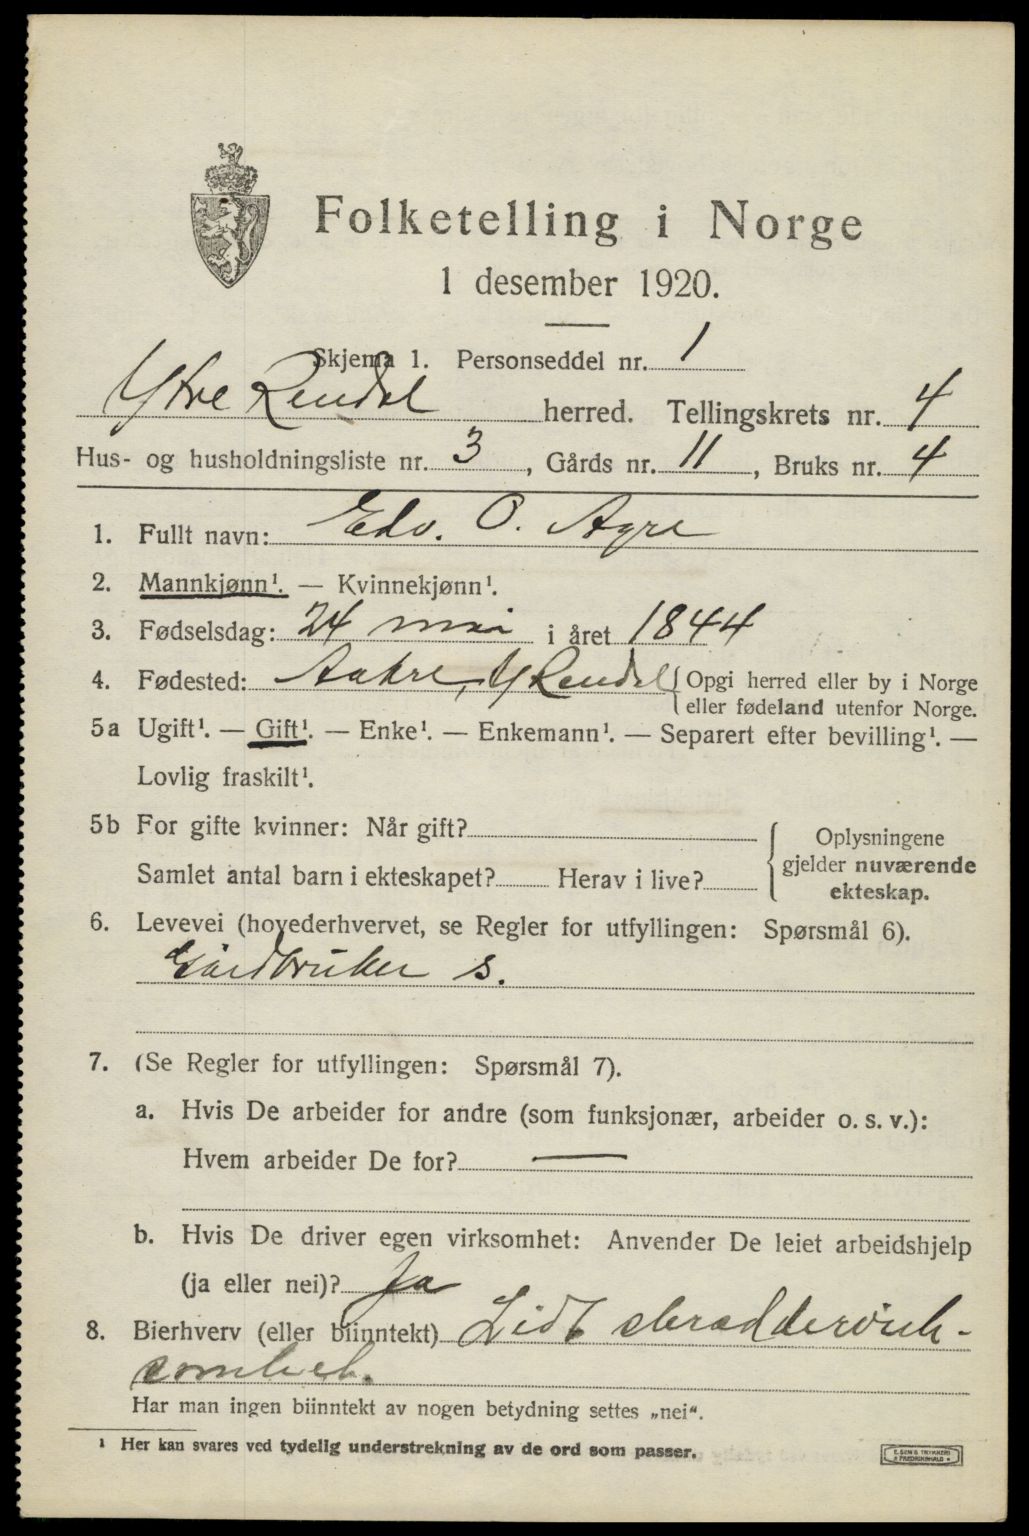 Folketelling i Norge
1 desember 1920.
Skjema 1. Personseddel nr. 1
Ytre Rendal herred. Tellingskrets nr. 4
Hus- og husholdningsliste nr. 3, Gårds nr. 11, Bruks nr. 4
1. Fullt navn: Edv. O. Agre
2. Mannkjønn¹. — Kvinnekjønn¹.
3. Fødselsdag: 24 mai i året 1844
4. Fødested: Aakre, Y Rendal {Opgi herred eller by i Norge
eller fødeland utenfor Norge.
5a Ugift¹. — Gift¹. — Enke¹. — Enkemann¹. — Separert efter bevilling¹. —
Lovlig fraskilt¹.
5b For gifte kvinner: Når gift?
Samlet antal barn i ekteskapet? Herav i live?
Oplysningene
gjelder nuværende
ekteskap.
6. Levevei (hovederhvervet, se Regler for utfyllingen: Spørsmål 6).
Gårdbruker s.
7. (Se Regler for utfyllingen: Spørsmål 7).
a. Hvis De arbeider for andre (som funksjonær, arbeider o. s. v.):
Hvem arbeider De for? —
b. Hvis De driver egen virksomhet: Anvender De leiet arbeidshjelp
(ja eller nei)? Ja
8. Bierhverv (eller biinntekt) Lidt skræddervirk-
somhet.
Har man ingen biinntekt av nogen betydning settes „nei“.
¹ Her kan svares ved tydelig understrekning av de ord som passer.
E. SEM'S TRYKKERI
FREDRIKSHALD